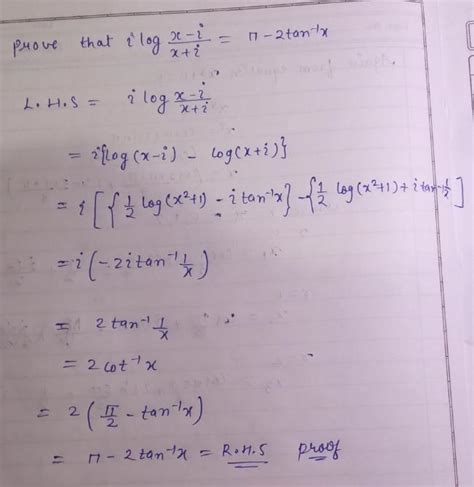 prove that i log x-i/x+i = π - 2tan⁻¹x
L.H.S = i log x-i/x+i
= i{log(x-i) - log(x+i)}
= i[{1/2 log(x²+1) - i tan⁻¹x} - {1/2 log(x²+1) + i tan⁻¹ 1/x]
= i(-2i tan⁻¹ 1/x)
= 2 tan⁻¹ 1/x
= 2 cot⁻¹ x
= 2(π/2 - tan⁻¹x)
= π - 2 tan⁻¹x = R.H.S proof